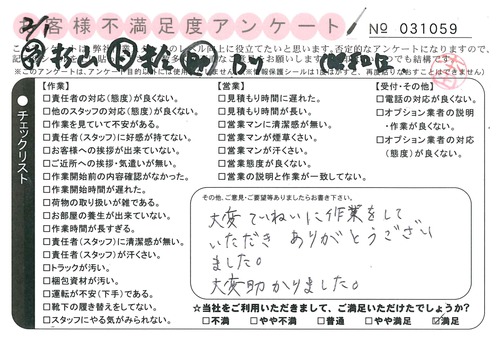 お客様不満足度アンケート
No 031059
【作業】
□責任者の対応(態度)が良くない。
□他のスタッフの対応(態度)が良くない。
□作業を見ていて不安がある。
□責任者(スタッフ)に好感が持てない。
□お客様への挨拶が出来ていない。
□ご近所への挨拶・気遣いが無い。
□作業開始前の内容確認がなかった。
□作業開始時間が遅れた。
□荷物の取り扱いが雑である。
□お部屋の養生が出来ていない。
□作業時間が長すぎる。
□責任者(スタッフ)に清潔感が無い。
□責任者(スタッフ)が汗くさい。
□トラックが汚い。
□梱包資材が汚い。
□運転が不安(下手)である。
□靴下の履き替えをしてない。
□スタッフにやる気がみられない。
【営業】
□見積もり時間に遅れた。
□見積もり時間が長い。
□営業マンに清潔感が無い。
□営業マンが煙草くさい。
□営業マンが汗くさい。
□営業態度が良くない。
□営業の説明と作業が一致してない。
【受付・その他】
□電話の対応が良くない。
□オプション業者の説明
・作業が良くない。
□オプション業者の対応
(態度)が良くない。
チェックリスト
その他、ご意見・ご要望等ありましたらお書き下さい。
大変ていねいに作業をして
いただき ありがとうござい
ました。
大変助かりました。
☆当社をご利用いただきまして、ご満足いただけたでしょうか?
□不満 □やや不満 □普通 □やや満足 ☑満足